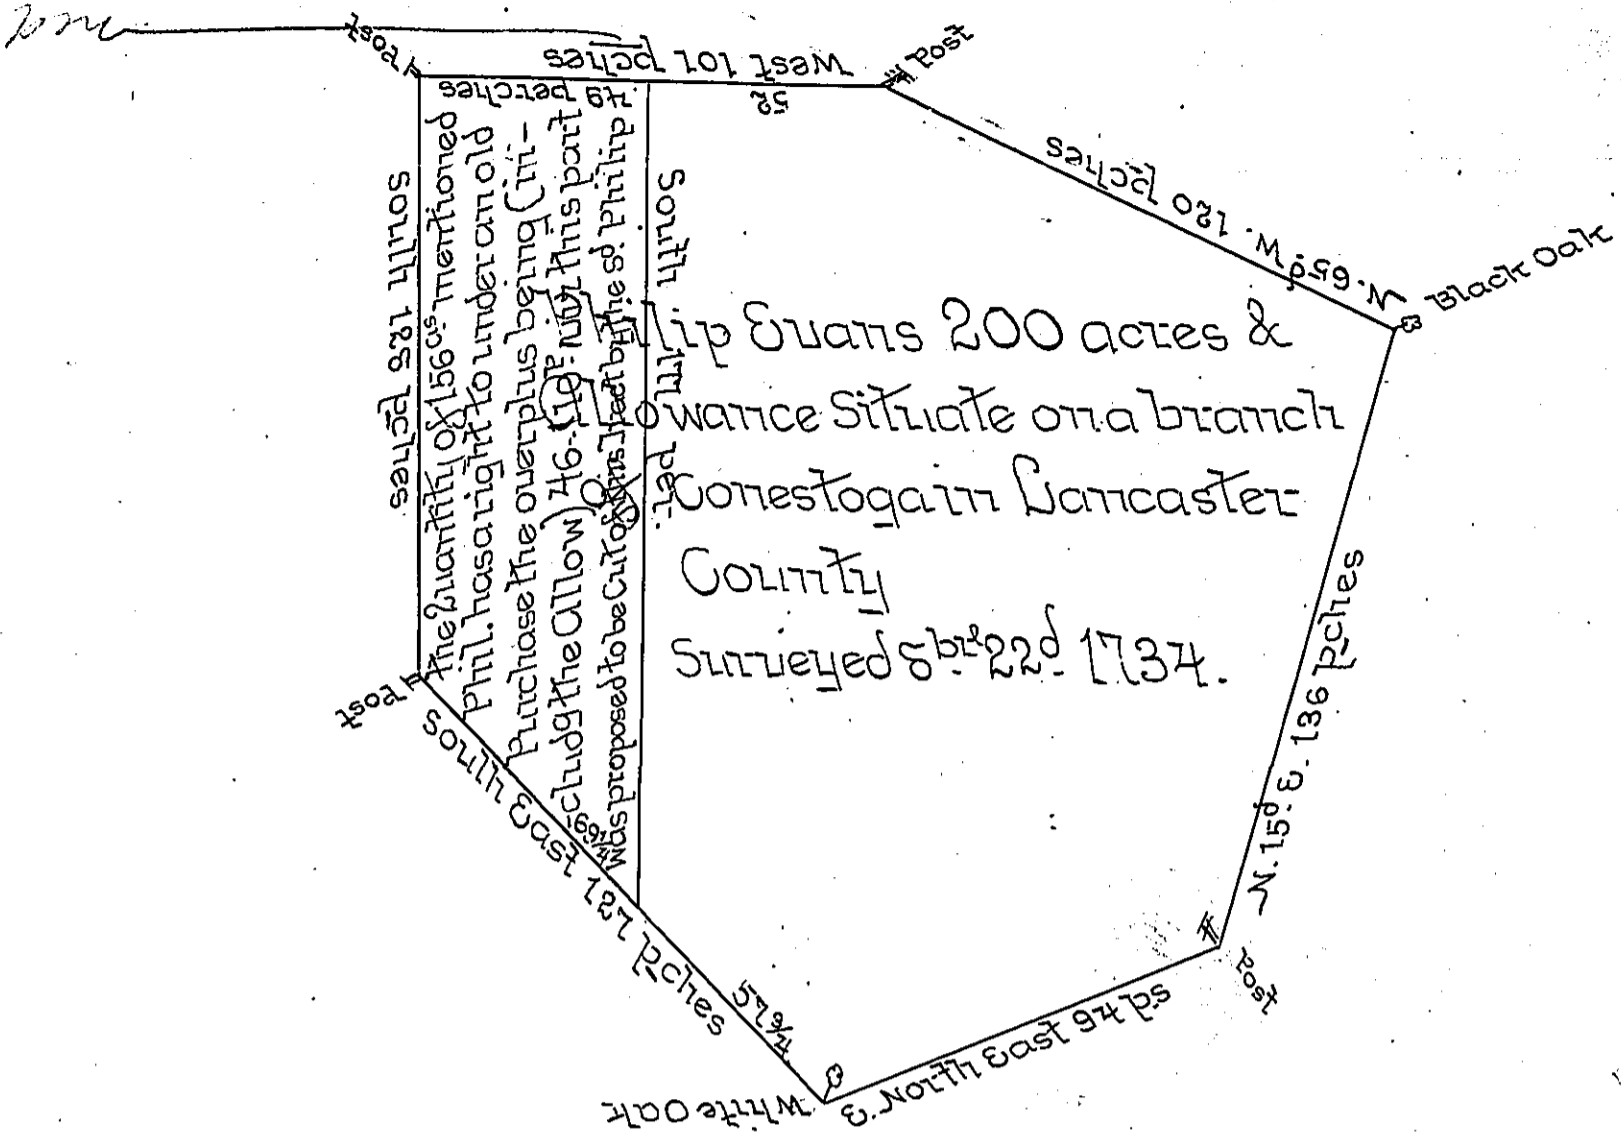 Post
West 101 pches
Post
49 perches
52
N. 65d. W. 120 pches
Black Oak
South 128 pches
the Quantity of 156 as. mentioned
Phil. has a right to under an old
Purchase the overplus being (in-
cludg the Allow) 46
was proposed to be Cut of
by the sd. Philip
this part
South 171 per.
Philip Evans 200 acres &
Allowance Situate on a branch
of Conestoga in Lancaster
County
Surveyed 8br. 22d. 1734.
N. 15d. E. 136 pches
Post
South East 127 pches
69 1/4
57 3/4
Post
E. North East 94 ps
White Oak